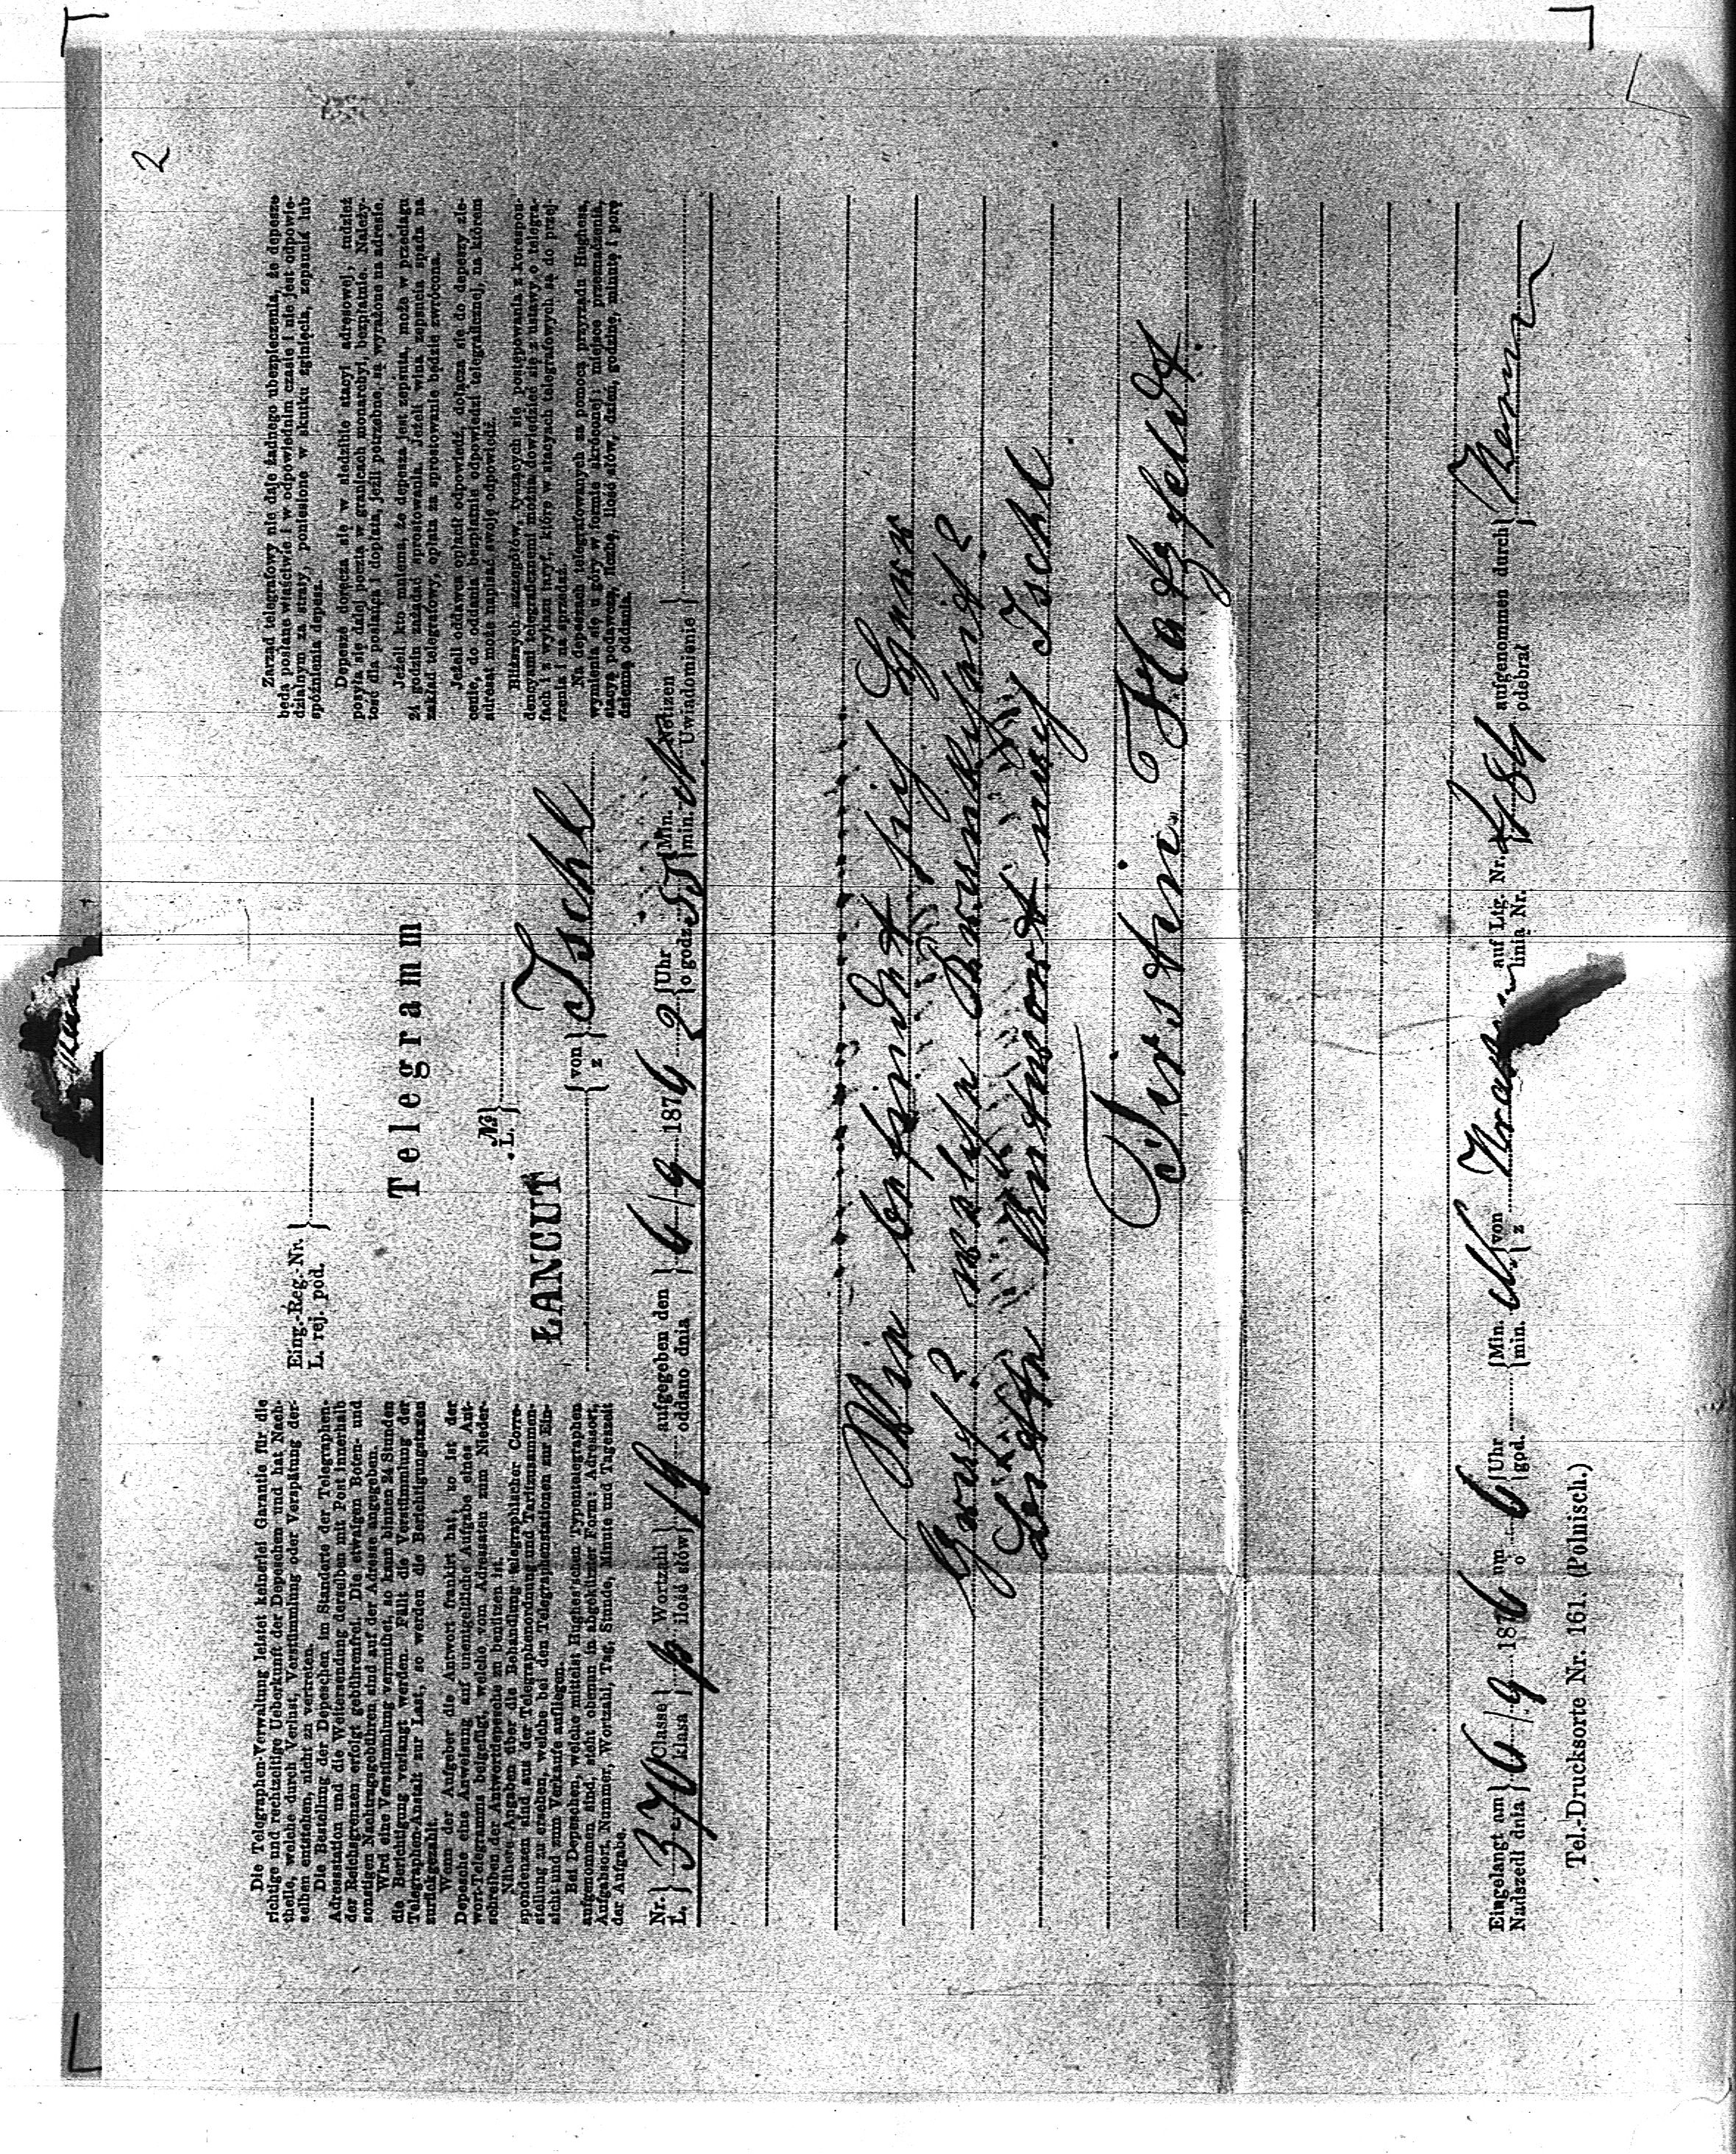 2
Die Telegraphen-Verwaltung leistet keinerlei Garantie für die
richtige und rechtzeitige Ueberkunft der Depeschen und hat Nach-
theile, welche durch Verlust, Verstümmlung oder Verspätung der-
selben entstehen, nicht zu vertreten.
Die Bestellung der Depeschen im Standorte der Telegraphen-
Adressstation und die Weitersendung derselben mit Post innerhalb
der Reichsgrenzen erfolgt gebührenfrei. Die etwaigen Boten- und
sonstigen Nachtragsgebühren sind auf der Adresse angegeben.
Wird eine Verstümmlung vermuthet, so kann binnen 24 Stunden
die Berichtigung verlangt werden. Fällt die Verstümmlung der
Telegraphen-Anstalt zur Last, so werden die Berichtigungstaxen
zurückgezahlt.
Wenn der Aufgeber die Antwort frankirt hat, so ist der
Depesche eine Anweisung auf unentgeltliche Aufgabe eines Ant-
wort-Telegramms beigefügt, welche vom Adressaten zum Nieder-
schreiben der Antwortdepesche zu benützen ist.
Nähere Angaben über die Behandlung telegraphischer Corre-
spondenzen sind aus der Telegraphenordnung und Tarifzusammen-
stellung zu ersehen, welche bei den Telegraphenstationen zur Ein-
sicht und zum Verkaufe aufliegen.
Bei Depeschen, welche mittelst Hughes'schen Typentelegraphen
aufgenommen sind, steht obenan in abgekürzter Form: Adressort,
Aufgabsort, Nummer, Wortzahl, Tag, Stunde, Minute und Tageszeit
der Aufgabe.
Eing.-Reg.-Nr.
L. rej. pod.
Telegramm
Nr.
L.
ŁANCUT von z Ischl
Zarząd telegrafowy nie daje żadnego ubezpieczenia, że depesze
będą posłane właściwie i w odpowiednim czasie i nie jest odpowie-
dzialnym za straty, poniesione w skutku zginięcia, zepsucia lub
spóźnienia depesz.
Depesze doręcza się w siedzibie stacyi adresowej, tudzież
posyła się dalej pocztą w granicach monarchyi, bezpłatnie. Należy-
tość dla posłańca i dopłata, jeśli potrzebne, są wyrażone na adresie.
Jeżeli kto mniema, że depesza jest zepsuta, może w przeciągu
24 godzin zażądać sprostowania. Jeżeli wina zepsucia spada na
zakład telegrafowy, opłata za sprostowanie będzie zwrócona.
Jeżeli oddawca opłacił odpowiedź, dołącza się do depeszy zle-
cenie, do oddania bezpłatnie odpowiedzi telegraficznej, na którem
adresat może napisać swoję odpowiedź.
Bliższych szczegółów, tyczących się postępowania z korespon-
dencyami telegraficznemi można dowiedzieć się z ustawy o telegra-
fach i z wykazu taryf, które w stacyach telegrafowych są do przej-
rzenia i na sprzedaż.
Na depeszach telegrafowanych za pomocą przyrządu Hughesa,
wymienia się u góry w formie skróconej: miejsce przeznaczenia,
stacyę podawczą, liczbę, ilość słów, dzień, godzinę, minutę i porę
dzienną oddania.
Nr. L. 370 Classe klasa p Wortzahl ilość słów 19 aufgegeben den oddano dnia 6/9 1876 2 Uhr o godz. 55 Min. min. M. Notizen Uwiadomienie
Wie befindet sich Herr
Graf? welche Krankheit?
bitte Antwort nach Ischl
Firstin Hatzfeldt
Eingelangt am Nadszedł dnia 6/9 1876 um o 6 Uhr god. Min. min. M von z auf Ltg. Nr. linia Nr. aufgenommen durch odebrał
Tel.-Drucksorte Nr. 161. (Polnisch.)